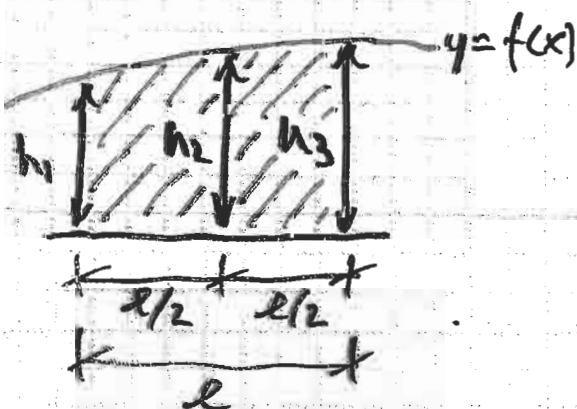 y = f(x)
h1 h2 h3
l/2 l/2
l